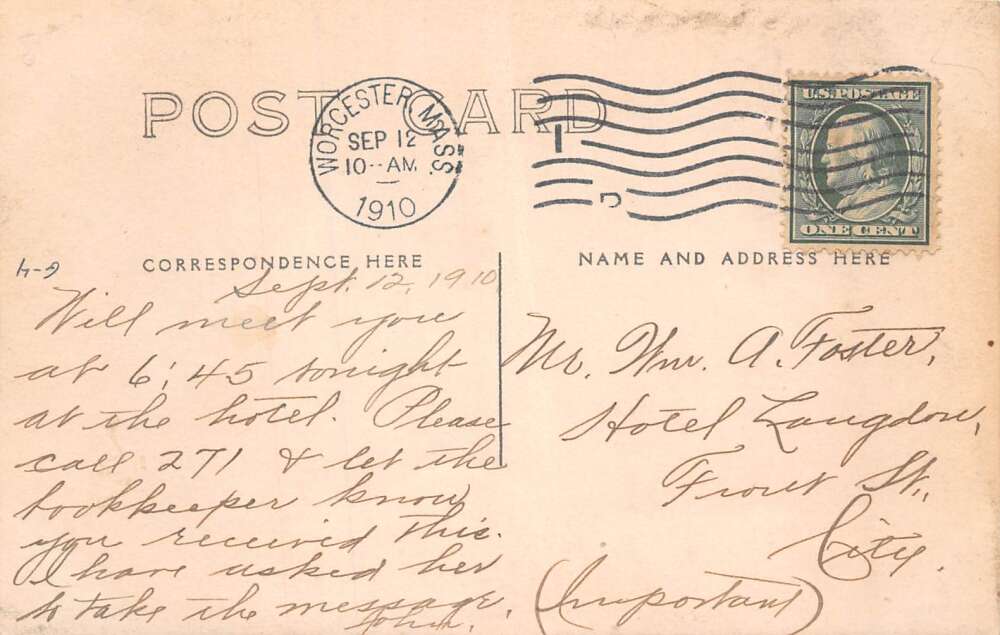 POST CARD
WORCESTER, MASS.
SEP 12
10-AM
1910
1
D
U.S. POSTAGE
ONE CENT
G-4
CORRESPONDENCE HERE
NAME AND ADDRESS HERE
Sept. 12, 1910
Will meet you
at 6:45 tonight
at the hotel. Please
call 271 & let the
bookkeeper know
you received this.
I have asked her
to take the message.
John.
Mr. Wm. A. Foster,
Hotel Langdon,
Front St.,
City.
(Important)